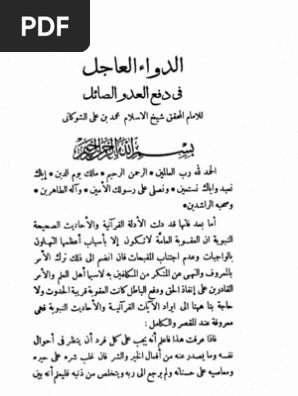 PDF
الدواء العاجل
فى دفع العدو الصائل
للامام المحقق شيخ الاسلام محمد بن على الشوكانى
بسم الله الرحمن الرحيم
الحمد لله رب العالمين * الرحمن الرحيم * مالك يوم الدين * إياك
نعبد وإياك نستعين * ونصلى على رسولك الأمين * وآله الطاهرين *
وصحبه الراشدين *
أما بعد فانها قد دلت الأدلة القرآنية والأحاديث الصحيحة
النبوية ان العقوبة العامة لا تكون إلا بأسباب أعظمها التهاون
بالواجبات وعدم اجتناب المقبحات فان انضم الى ذلك ترك الأمر
بالمعروف والنهى عن المنكر من المكلفين به لاسيما أهل العلم والأمر
القادرين على إنفاذ الحق ودفع الباطل كانت العقوبة قريبة الحدوث ولا
حاجة بنا هنا الى ايراد الآيات القرآنية والأحاديث النبوية فهى
معروفة عند المقصر والكامل :
فاذا عرفت هذا فاعلم أنه يجب على كل فرد أن ينظر فى أحوال
نفسه وما يصدر عنه من أفعال الخير والشر فان غلب شره على خيره
ومعاصيه على حسناته ولم يرجع الى ربه ويتخلص من ذنبه فليعلم أنه بين